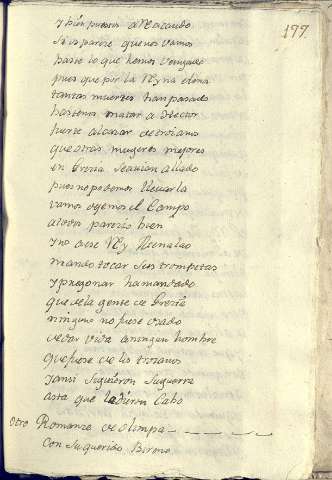 199.
y bien puestos a
si os parece que nos vamos
baste lo que hemos vengado
pues que por la Reyna elena
tantas muertes han pasado
bastenos matar a Hector
fuerte alcaçar de troianos
que otras mugeres mejores
en Grecia se avian allado
pues no podemos llevarla
vamos dejemos el Campo
a todos pareció bien
y no a ese Rey Menalao
mando tocar sus trompetas
y pregonar ha mandado
que de la gente de Grecia
ninguno no fuese osado
de dar vida a ningun hombre
que fuese de los troianos
y ansi siguieron su guerra
asta que le dieron Cabo
Otro Romanze de olimpa
Con su querido Bireno